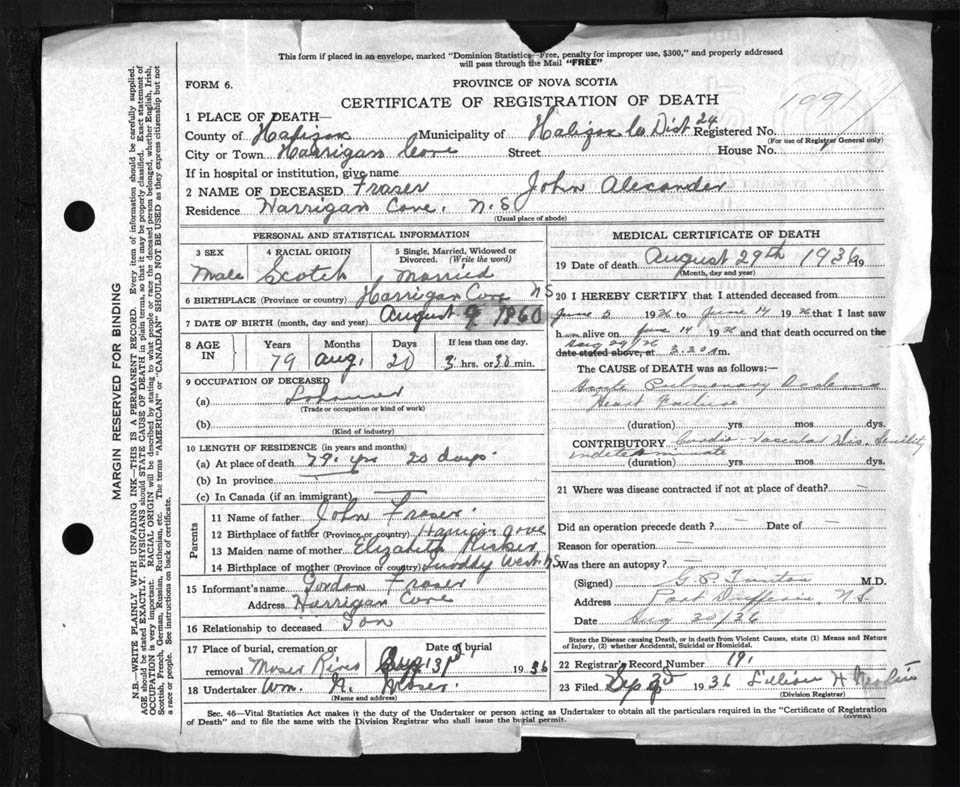 This form if placed in an envelope, marked "Dominion Statistics—Free, penalty for improper use, $300," and properly addressed
will pass through the Mail "FREE"
FORM 6.
PROVINCE OF NOVA SCOTIA
CERTIFICATE OF REGISTRATION OF DEATH
1 PLACE OF DEATH—
County of Halifax Municipality of Halifax Co Dist 24 Registered No.
(For use of Registrar General only)
City or Town Harrigan Cove Street House No.
If in hospital or institution, give name
2 NAME OF DECEASED Fraser John Alexander
Residence Harrigan Cove. N.S
(Usual place of abode)
PERSONAL AND STATISTICAL INFORMATION
3 SEX 4 RACIAL ORIGIN 5 Single, Married, Widowed or Divorced. (Write the word)
Male Scotch Married
6 BIRTHPLACE (Province or country) Harrigan Cove NS
7 DATE OF BIRTH (month, day and year) August 9 1860
8 AGE IN Years Months Days If less than one day.
79 Aug. 20 3 hrs. or 30 min.
9 OCCUPATION OF DECEASED
(a)
(Trade or occupation or kind of work)
(b)
(Kind of industry)
10 LENGTH OF RESIDENCE (in years and months)
(a) At place of death 79. yrs 20 days.
(b) In province
(c) In Canada (if an immigrant)
Parents
11 Name of father John Fraser.
12 Birthplace of father (Province or country) Harrigan Cove
13 Maiden name of mother Elizabeth
14 Birthplace of mother (Province or country) West NS
15 Informant's name Gordon Fraser
Address Harrigan Cove
16 Relationship to deceased Son
17 Place of burial, cremation or removal Moser River Date of burial 31 1936
18 Undertaker Wm. Moser.
(Name and address)
MEDICAL CERTIFICATE OF DEATH
19 Date of death August 29th 1936 19
(Month, day and year)
20 I HEREBY CERTIFY that I attended deceased from
June 5 1936 to June 14 1936 that I last saw
h im alive on June 14 1936 and that death occurred on the
Aug 29/36
date stated above, at 3.30 A m.
The CAUSE of DEATH was as follows:—
Acute Pulmonary Oedema
Heart Failure
(duration) yrs. mos. dys.
CONTRIBUTORY Cardio-Vascular Dis. Senility
indeterminate
(duration) yrs. mos. dys.
21 Where was disease contracted if not at place of death? —
Did an operation precede death? — Date of —
Reason for operation —
Was there an autopsy? —
(Signed) G. M.D.
Address Port Dufferin, N.S.
Date Aug 30/36
State the Disease causing Death, or in death from Violent Causes, state (1) Means and Nature
of Injury, (2) whether Accidental, Suicidal or Homicidal.
22 Registrar's Record Number 191
23 Filed Sep 1936 Lillian H
(Division Registrar)
Sec. 46—Vital Statistics Act makes it the duty of the Undertaker or person acting as Undertaker to obtain all the particulars required in the "Certificate of Registration
of Death" and to file the same with the Division Registrar who shall issue the burial permit.
(OVER)
MARGIN RESERVED FOR BINDING
N.B.—WRITE PLAINLY WITH UNFADING INK—THIS IS A PERMANENT RECORD. Every item of information should be carefully supplied.
AGE should be stated EXACTLY. PHYSICIANS should STATE CAUSE OF DEATH in plain terms, so that it may be properly classified. Exact statement of
OCCUPATION is very important. RACIAL ORIGIN will be described by stating to what people or race the deceased person belonged, whether English, Irish,
Scottish, French, German, Russian, Ruthenian, etc. The terms "AMERICAN" or "CANADIAN" SHOULD NOT BE USED as they express citizenship but not
a race or people. See instructions on back of certificate.